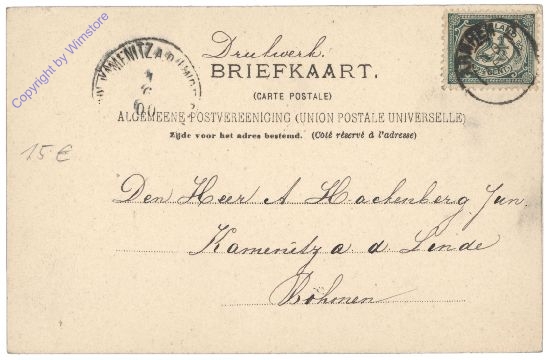 Copyright by Wimstore
Drukwerk.
BRIEFKAART.
(CARTE POSTALE)
ALGEMEENE POSTVEREENIGING (UNION POSTALE UNIVERSELLE)
Zijde voor het adres bestemd. (Côté réservé à l'adresse)
KAMENITZ A.D.
15 €
Den Heer A Hackenberg Jun.
Kamenitz a. d. Linde
Böhmen